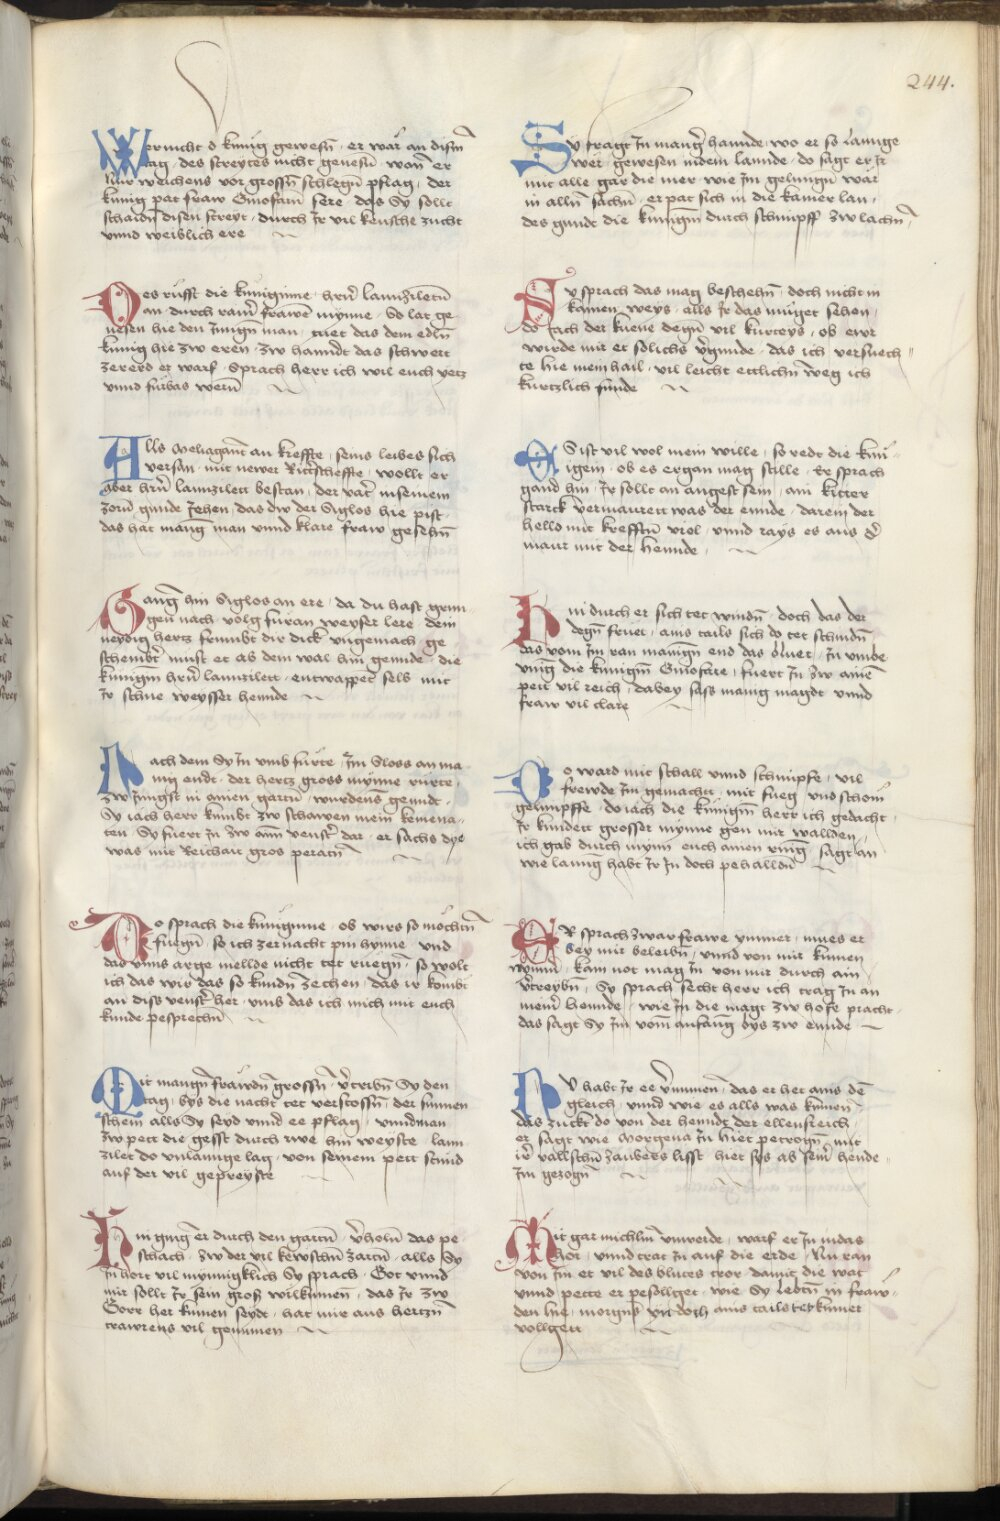 244.
Wer nicht d kunig gewesn er war an disem
tag des streytes nicht genesn wann er
nur weichens vor grossn schlegn pflag der
kunig pat fraw Ginofarn sere das Sy sollt
schaidn disen streyt durch Ir vil keusche zucht
vnnd weiblich ere
Des rufft die kuniginne hern lannziletn
an durch rainer frawe mynne So lat ge
nesen hie den Jungn man tuet das dem edln
kunig hie zw eren zw hanndt das schwert
zererd er warf Sprach herr ich wil euch yetz
vnnd furbas wern
Alls Meliagant an kreffte seins leibes sich
versan mit newer Ritterscheffte wollt er
aber hern lannzilett bestan der vater in seinem
zorn gunde Jehen das dw der Siglos hie pist
das hat manig man vnnd klare fraw gesehn
Ganng hin Siglos an ere da du hast grun
gen nach volg furan weyser lere dein
neydig hertz frumbt dir dick vngemach ge
schenbt must er ab dem wal hin gennde die
kunigin hern lannzilett entwappet selb mit
Ir schne weysser hennde
Nach dem Sy In vmb furte Im Sloss an ma
nig endt der hertz gross mynne rurte
zw Jungst in ainen gartn wurdens gennde
Sy iach herr kumbt zw schawen mein kemena
ten Sy fuert In zw aim venster dar er sachs dye
was mit Reichait gros peratn
Do sprach die kuniginne ob wirs so mochtn
fuegn so ich zernacht pin hynne vnd
das vnns arge mellde nicht tet ruegn so wolt
ich das wir das so kundn zechen das ir kombt
an diss venster her vnns das ich mich mit euch
kunde pesprechn
Mit mangn frawdn grossn vertribn Sy den
tag bys die nacht tet verstossn der sunnen
schein alls Sy seyd vnnd ee pflag vnndman
zw pett die gesst durch rwe hin weyste lann
zilet do vnlannge lag von seinem pett stund
auf der vil gepreyste
Hin ging er durch den gartn verholn das pe
schach zw der vil kewschn zartn alls Sy
In hort vil mynnigklich Sy sprach Got vnnd
mir sollt Ir sein gros wilkumen das Ir zw
Gore her kumen seydt hat mir aus hertzn
trawrens vil genumen
Sy fragt In manger hannde wo er so lannge
wer gewesen in dem lannde do sagt er Ir
mit alle gar die mer wie Im gelungn war
in alln sachn er pat sich in die kamer lan
des gunde die kunigin durch schimpff zw lachn
Sy sprach das mag beschehn doch nicht in
kainen weys alls Ir das muget sehen
do iach der kuene degn vil kurteys ob ewr
wirde mir et solichs vergunde das ich versuech
te hie mein hail vil leicht ettlichn weg ich
kurtzlich funde
Es ist vil wol mein wille so redt die kun
igein ob es ergan mag stille Er sprach
gand hin Ir sollt an angest sein ain kitter
starck vermaurett was der ennde darein der
helld mit krefftn viel vnnd rays es aus der
maur mit der hennde
Hin durch er sich tet windn doch das der
degn fruet ains tails sich do tet schindn
das vom Im ran manign end das pluet In vmbe
vieng die kunigin Ginofare fuert In zw ainem
pett vil reich dabey sass manig magdt vnnd
fraw vil clare
Do ward mit schall vnnd schimpfe vil
frewde Im gemacht mit fueg vnd schon
gelimpffe do iach die kunigin herr ich gedacht
Ir kundett grosser mynne gen mir wallden
ich gab durch mynn euch ainen ring sagt an
wie lanng habt Ir In doch pehalldn
ER sprach zwar frawe ymmer mues er
bey mir beleibn vnnd von mir kumen
nymmer kain not mag In von mir durch ain
vertreybn Sy sprach secht herr ich trag In an
meiner hennde wie In die magt zw hofe pracht
das sagt Sy Im vom anfang bys zw ennde
Nv habt Ir ee vernumen das er het ains dem
gleich vnnd wie es alls was kumen
das zuckt do von der hendt der ellenstreich
er sagt wie Morgena In hiet petrogn mit
irer vallschn zaubers lisst hiet sys ab seiner hende
Im gezogn
Mit gar michlm vnwerde warf er In in das
hor vnnd trat In auf die erde Nu ran
von Im et vil des bluetes tror damit die wat
vnnd pette er pesullget wie Sy lebtn in fraw
den hie morgns yn doch ains tails tet kumer
vollgett